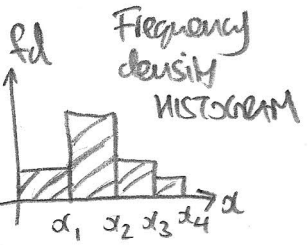 fd
Frequency
density
HISTOGRAM
x
x₁ x₂ x₃ x₄